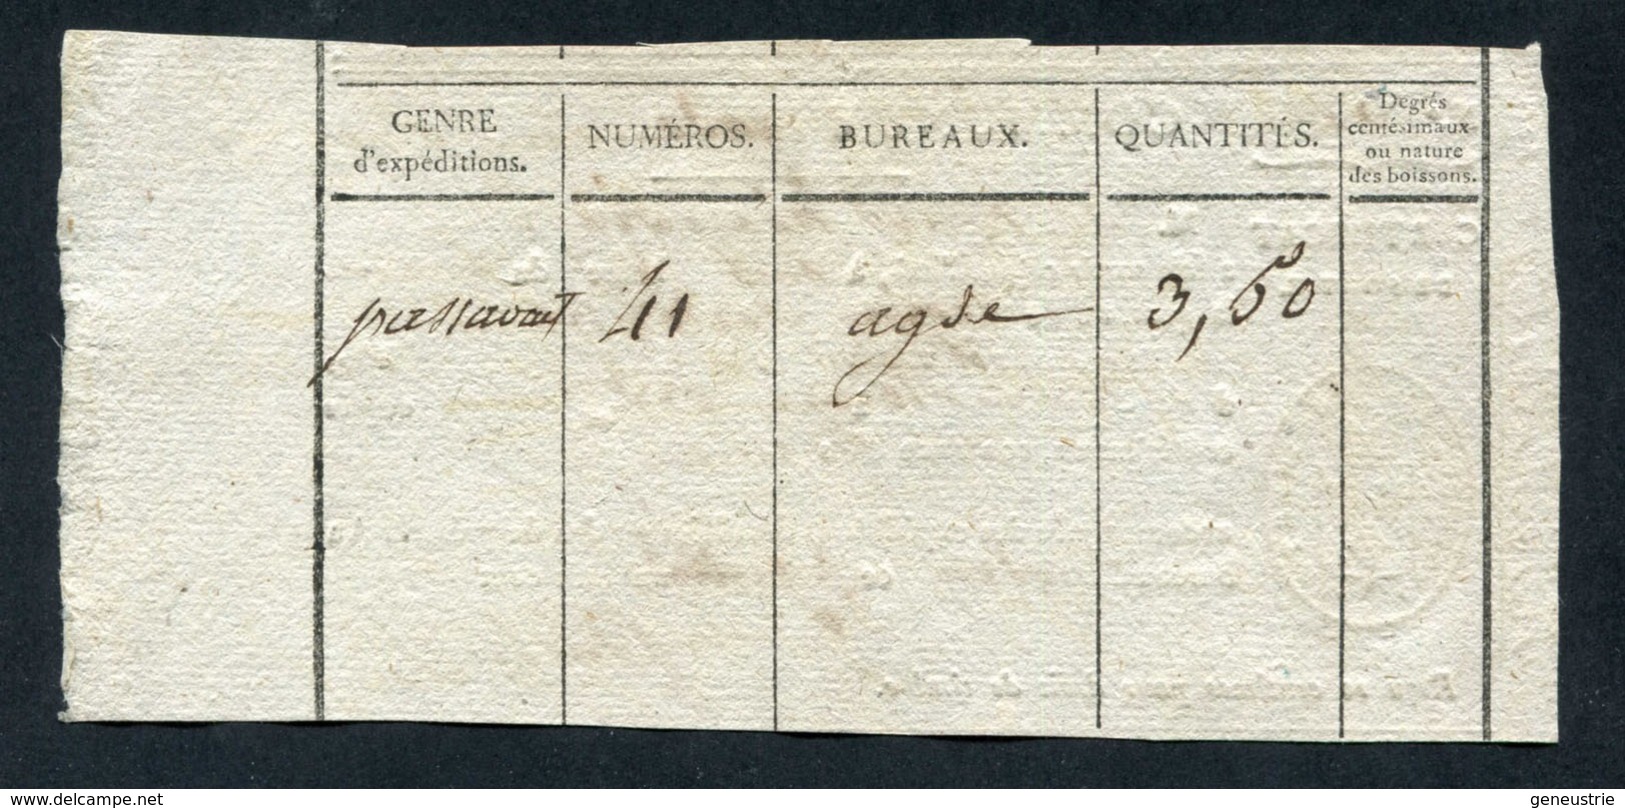 GENRE
d'expéditions.
NUMÉROS.
BUREAUX.
QUANTITÉS.
Degrés
centésimaux
ou nature
des boissons.
passavant 411 agde 3,60
www.delcampe.net
geneustrie